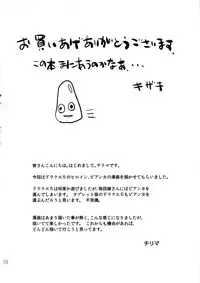 お買いあげありがとうございます。
この本まにあうのかなあ・・・
キザキ
皆さんこんにちは。はじめまして。チリマです。
今回はドラクエ5のヒロイン、ビアンカの漫画を描かせてもらいました。
ドラクエ5は何度か遊びましたが、毎回嫁さんにビアンカを
選んでしまいます。タブレット版のドラクエ5もビアンカを
選ぶんだろうと思います。不思議。
漫画はあまり描いた事が無く、こんな感じになりましたが、
描いてて楽しかったです。これからも機会があれば、
どんどん描いて行こうと思ってます。
チリマ